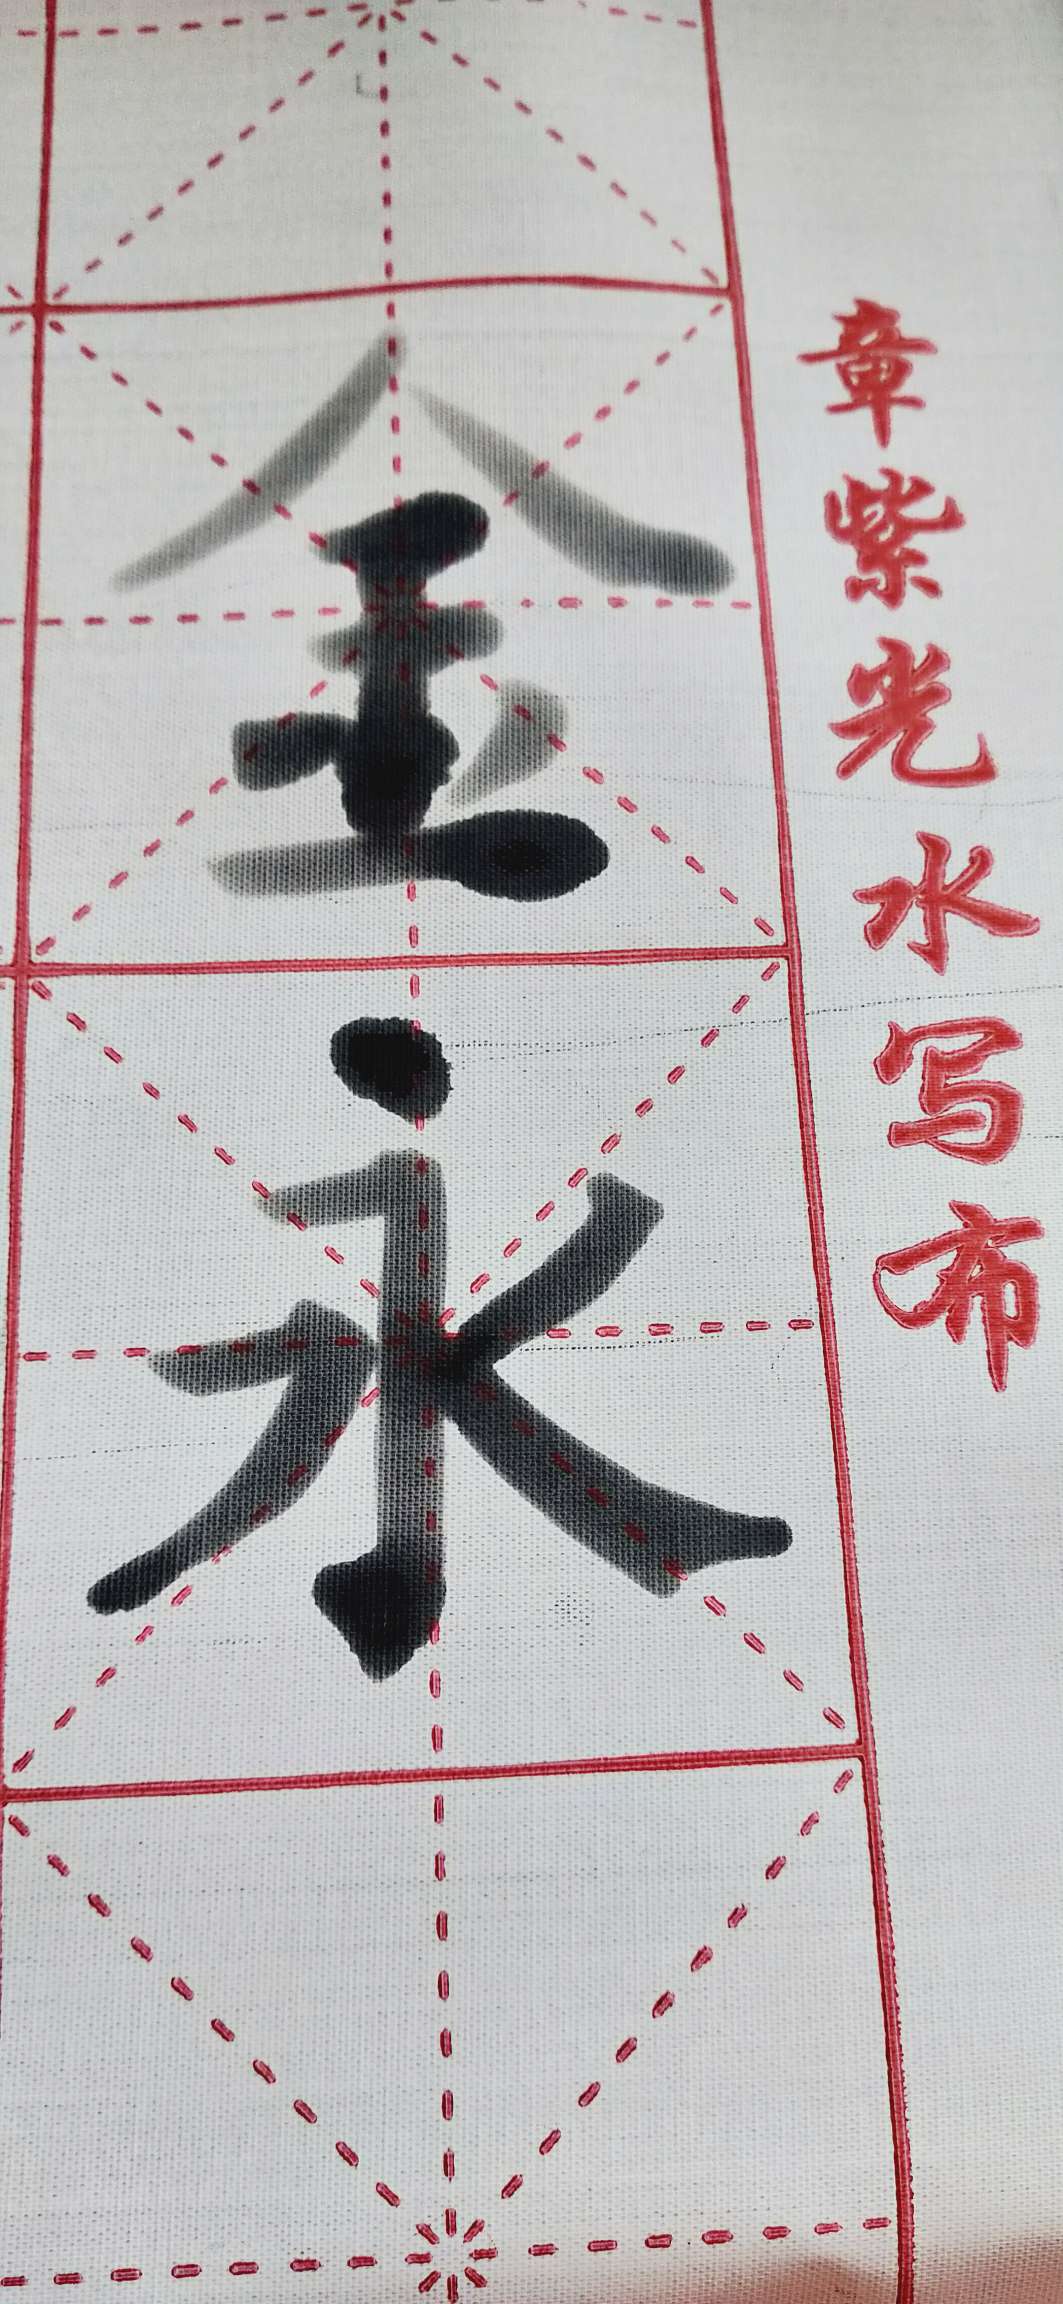 章紫光水写布
金永